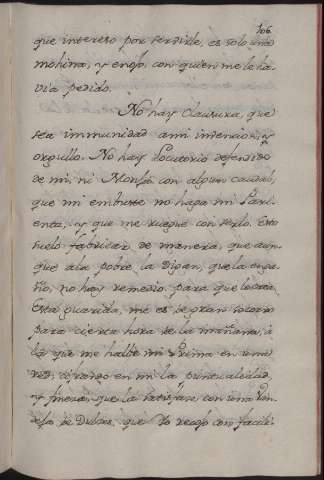 106
que intereso por servirle, es solo una
mohina, y enojo, con quien me le ha-
via pedido.
No hay Clausura, que
sea immunidad a mi intencion, y
orgullo. No hay Locutorio defendido
de mi, ni Monja con algun caudal,
que mi embuste no haga mi Pari-
enta, y que me ruegue con serlo. Esto
suelo fabricar de manera, que aun-
que a la pobre la digan, que la enga-
ño, no hay remedio para que lo crea.
Esta guarida, me es de gran socorro
para cierta hora de la mañana, á
la que me halla mi Prima en una
red, creiendo en mi la puntualidad,
y fineza, que la satisface con una ban-
deja de Dulces, que Yo recojo con facili-